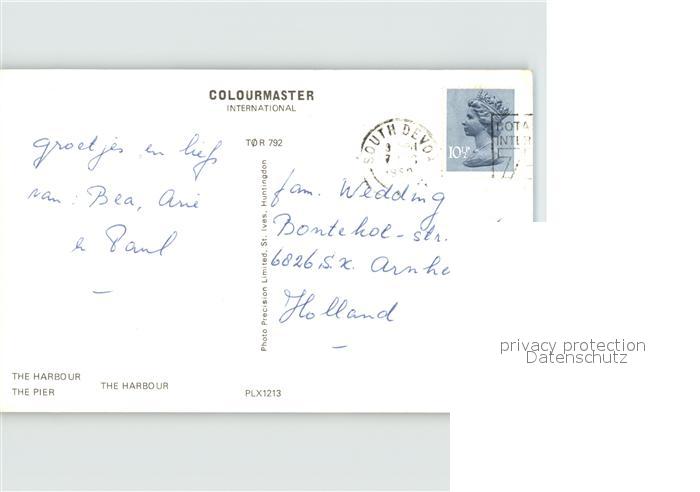 COLOURMASTER
INTERNATIONAL
TØR 792
SOUTH DEVO
10½P
groetjes en liefs
van: Bea, Arie
en Paul
fam. Wedding
Bontekoe-str.
6826 S.X. Arnhe
Holland
Photo Precision Limited, St. Ives, Huntingdon
THE HARBOUR
THE PIER
THE HARBOUR
PLX1213
privacy protection
Datenschutz